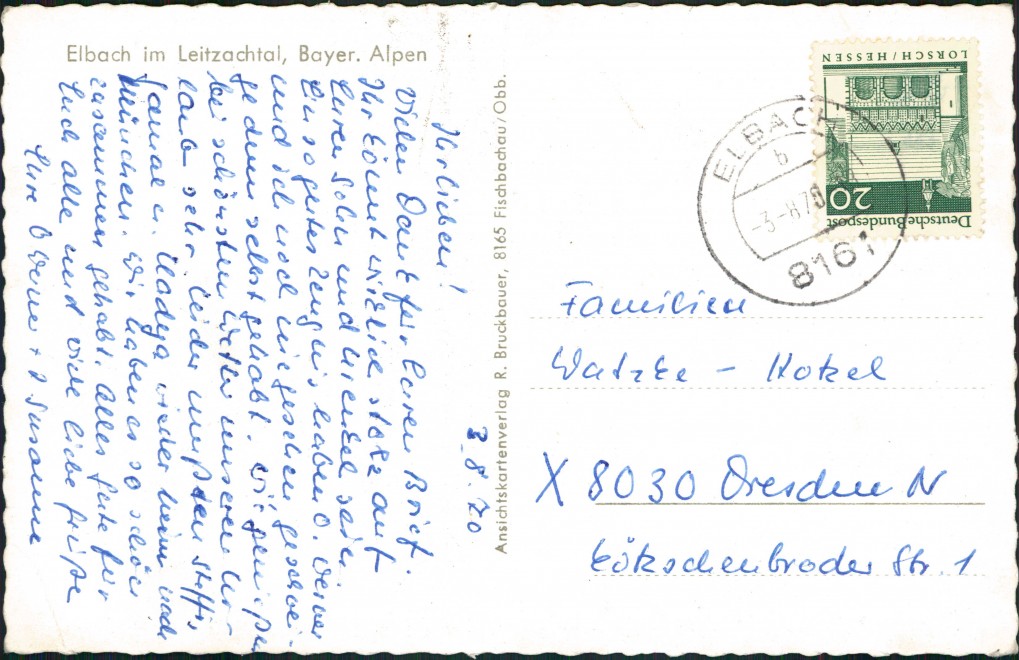 Elbach im Leitzachtal, Bayer. Alpen
3.8.70
Ihr lieben!
Vielen Dank für Euren Brief.
Ihr könnt wirklich stolz auf
Euren Sohn und Urenkel sein.
Ein so gutes Zeugnis haben O. Werner
und ich noch nie gesehen geschwei-
ge denn selbst gehabt. Wir genießen
bei schönstem Wetter unseren Ur-
laub sehr. Leider mußten Steffi,
Gamal u. Nadya wieder heim nach
München. Wir haben es so schön
zusammen gehabt. Alles Gute für
Euch alle und viele liebe Grüße
Eure O Werner + T Susanne
Ansichtskartenverlag R. Bruckbauer, 8165 Fischbachau/Obb.
LORSCH/HESSEN
20
Deutsche Bundespost
ELBACH
b
-3.-8.70
8161
Familien
Watzke - Hotzel
X 8030 Dresden N
Kötzschenbroder Str. 1